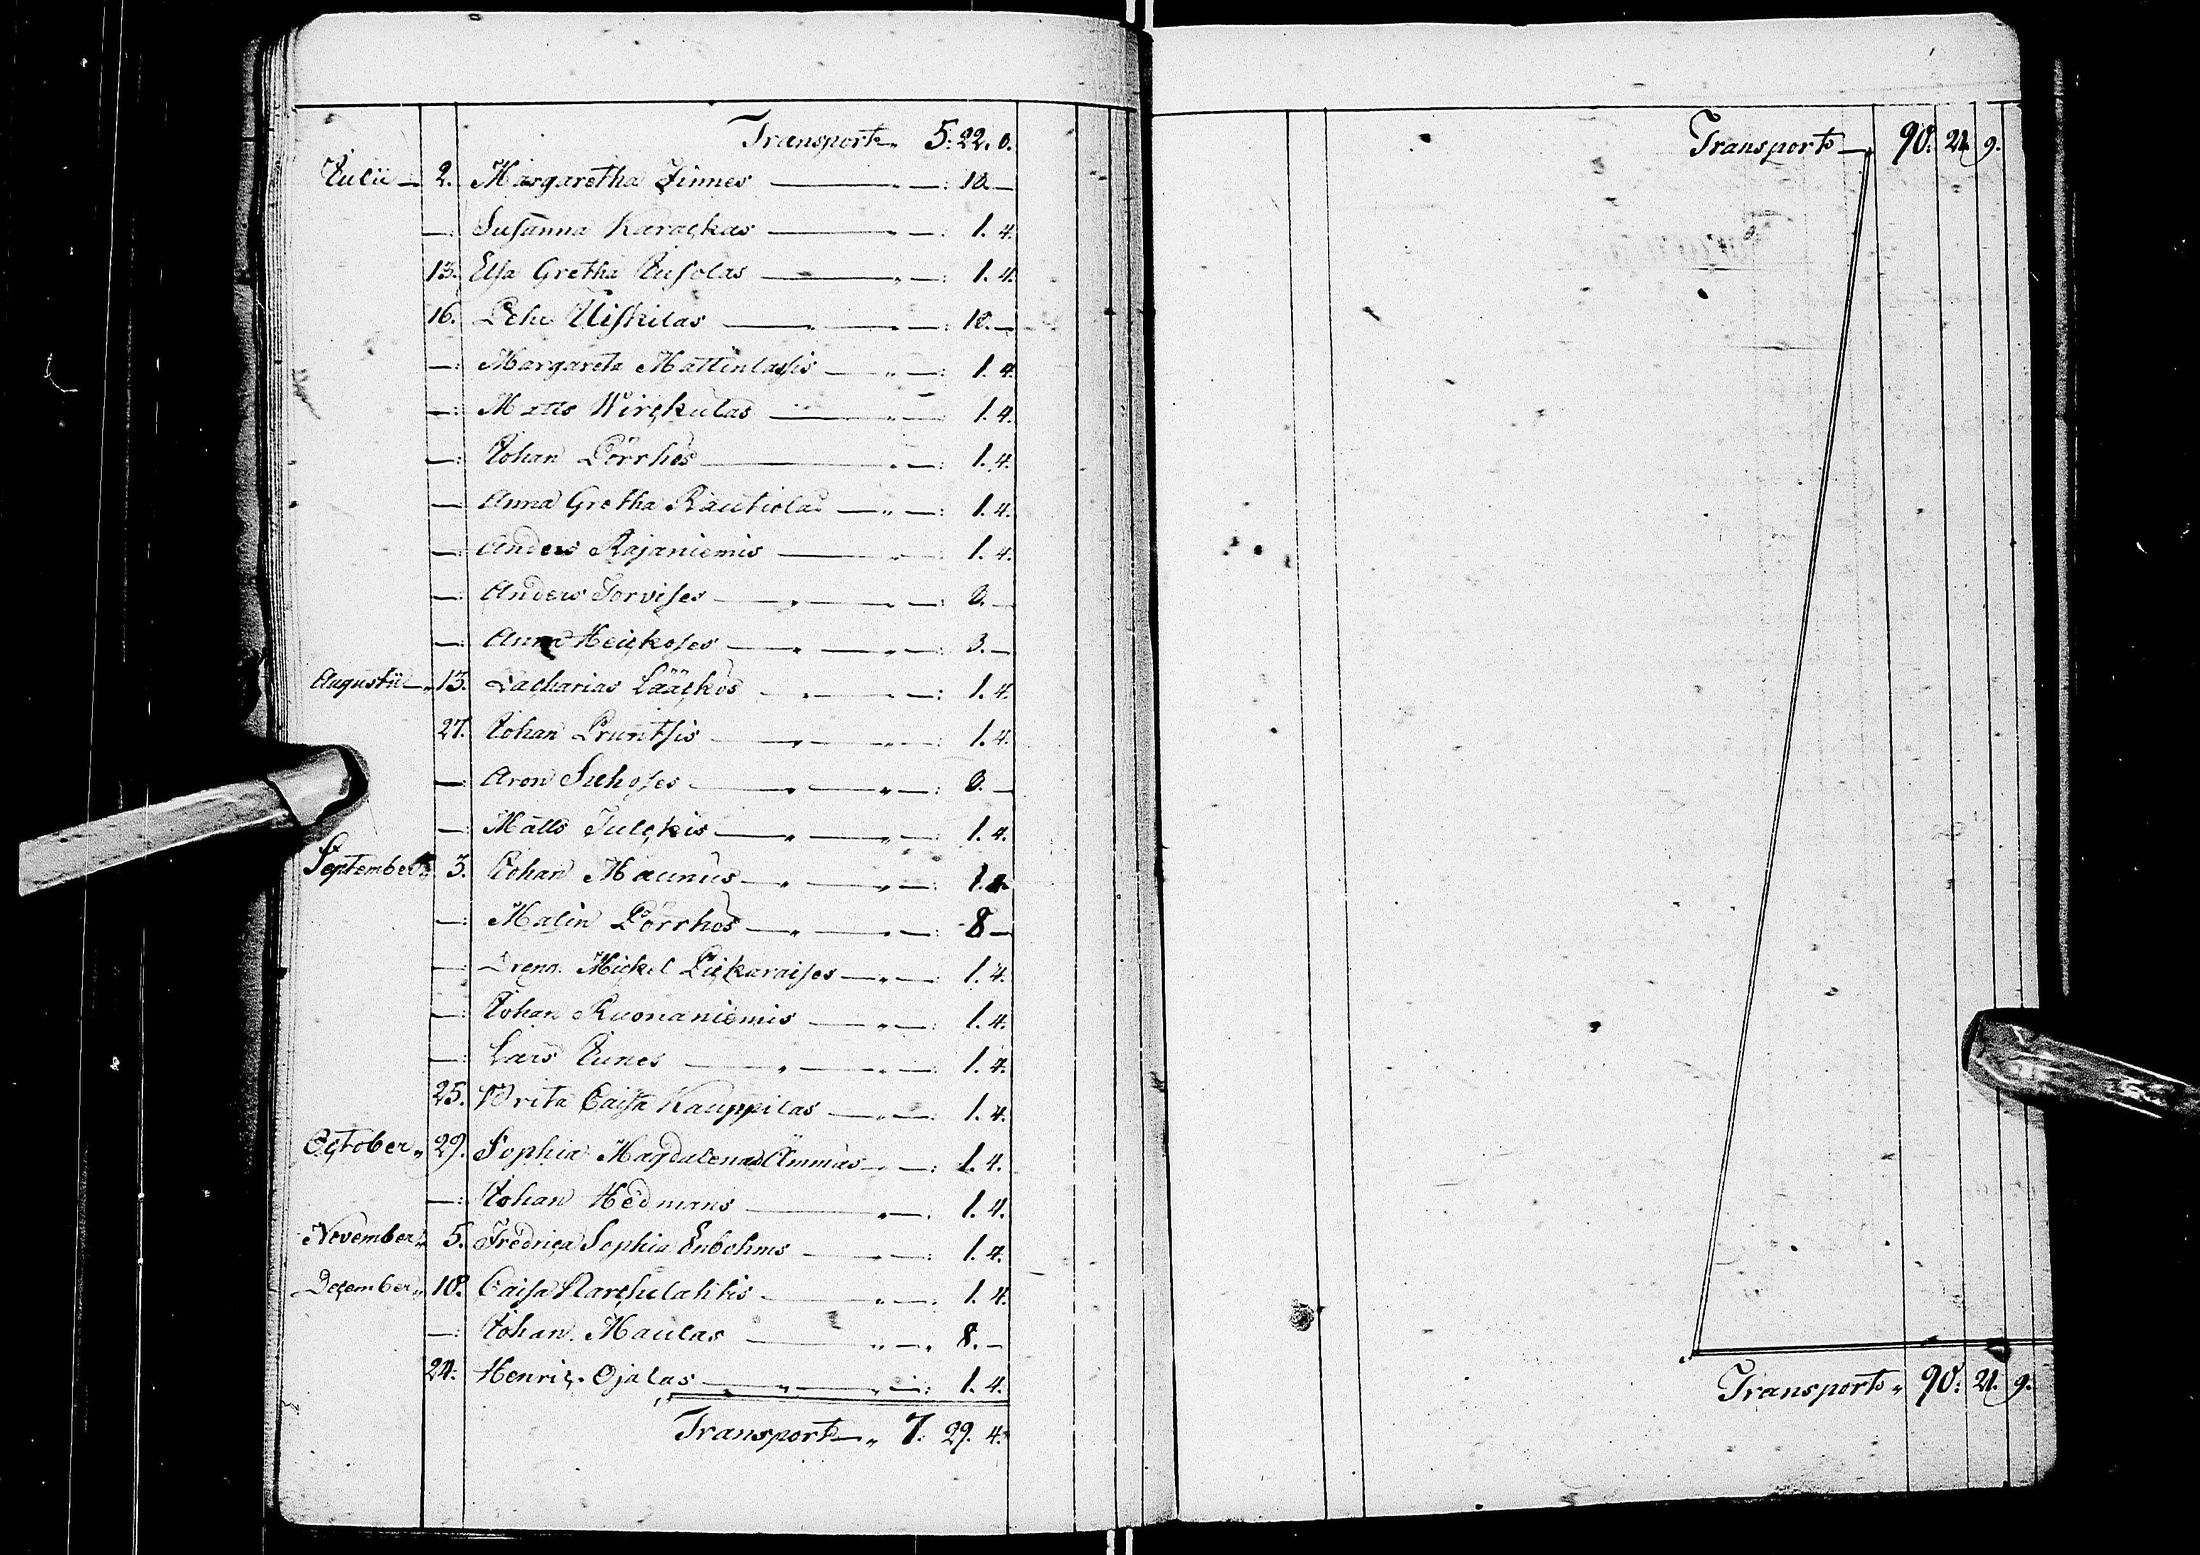 Transport 5. 22. 8.
Julii 2. Margaretha Finnes 10.
Susanna Karackas 1. 4.
13. Elsa Gretha Jusolas 1. 4.
16. Pehr Uiskilas 18.
Margareta Mattinlassis 1. 4.
Matts Wirckulas 1. 4.
Johan Pörrhös 1. 4.
Anna Gretha Rautiolas 1. 4.
Anders Rajaniemis 1. 4.
Anders Torvises 8.
Anna Heickoses 3.
Augustii 13. Zacharias Lääckös 1. 4.
27. Johan Pruntsis 1. 4.
Aron Siehoses 8.
Matts Julckis 1. 4.
September 3. Johan Maunus 1. 4.
Malin Pörrhös 8
Dreng. Mickel Pickaraises 1. 4.
Johan Ruonaniemis 1. 4.
Lars Junes 1. 4.
25. Brita Caisa Kauppilas 1. 4.
October 29. Sophia Magdalena Ämmäs 1. 4.
Johan Hedmans 1. 4.
November 5. Fredrica Sophia Enbohms 1. 4.
December 10. Caisa Narhilahtis 1. 4.
Johan Maulas 8.
24. Henric Ojalas 1. 4.
Transport 7. 29. 4.
Transport 90. 21. 9.
Transport 90. 21. 9.